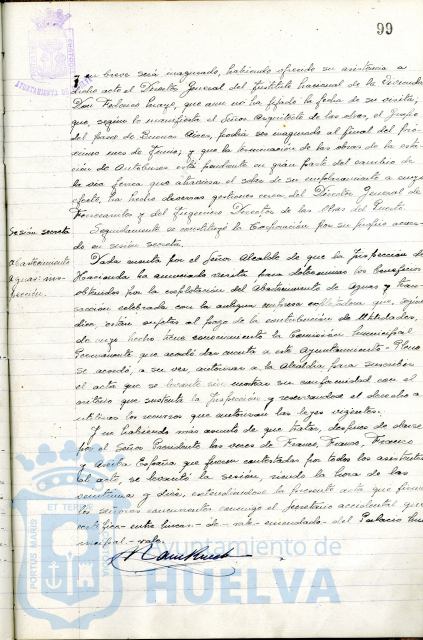 99
AYUNTAMIENTO DE
y en breve será inaugurado, habiendo ofrecido su asistencia a
dicho acto el Director General del Instituto Nacional de la Vivienda
Don Federico Mayo, que aun no ha fijado la fecha de su visita;
que, según le manifiesta el Señor Arquitecto de las obras, el Grupo
del paseo de Buenos Aires, podrá ser inaugurado al final del pró-
ximo mes de Junio; y que la terminación de las obras de la esta-
ción de Autobuses está pendiente en gran parte del cambio de
la vía férrea que atraviesa el solar de su emplazamiento a cuyo
efecto, ha hecho diversas gestiones cerca del Director General de
Ferrocarriles y del Ingeniero Director de las Obras del Puerto.
Sesión secreta
Seguidamente se constituyó la Corporación por su propio acuer-
do en sesión secreta.
Abastecimiento
Dada cuenta por el Señor Alcalde de que la Inspección de
aguas: ins-
Hacienda ha anunciado visita para determinar los beneficios
pección
obtenidos por la explotación del Abastecimiento de aguas y tran-
sacción celebrada con la antigua empresa que, según
dice, están sujetos al pago de la contribución de Utilidades,
de cuyo hecho tiene conocimiento la Comisión Municipal
Permanente que acordó dar cuenta a este Ayuntamiento-Pleno
se acordó, a su vez, autorizar a la Alcaldía para suscribir
el acta que se levante sin mostrar su conformidad con el
criterio que sustenta la Inspección y reservándose el derecho a
utilizar los recursos que autorizan las leyes vigentes.
Y no habiendo más asunto de que tratar, después de darse
por el Señor Presidente las voces de Franco, Franco, Franco
y Arriba España que fueron contestadas por todos los asistentes
al acto, se levantó la sesión, siendo la hora de las
veintiuna y diez, extendiéndose la presente acta que firman
los señores concurrentes conmigo el Secretario accidental que
certifica = entre lineas = de = vale = enmendado = del Palacio Mu-
nicipal = vale.
PORTUS MARIS
ET TERRAE
Ayuntamiento de
HUELVA